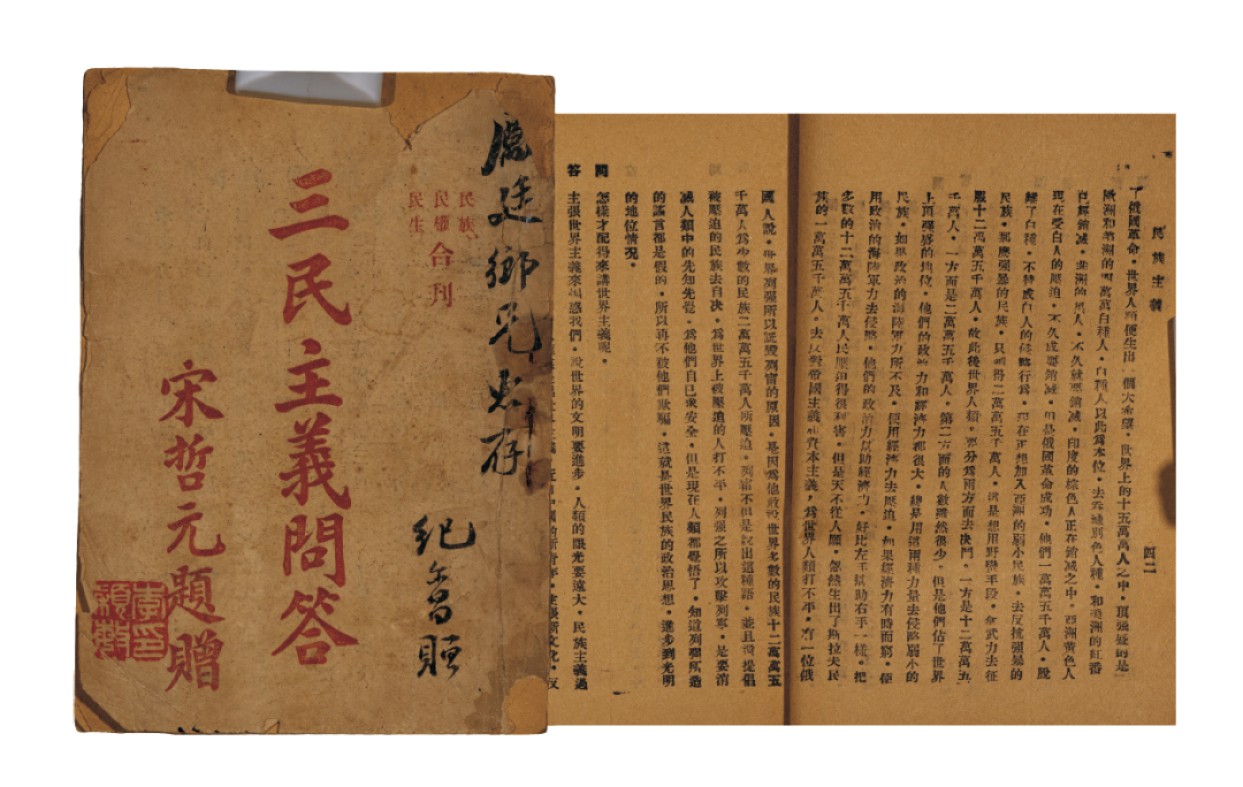 三民主義問答
民族
民權
民生
合刊
宋哲元題贈
廷鄉兄惠存
民族主義
四二
了俄國革命・世界人類便生出一個大希望・世界上的十五萬萬人之中・頂強盛的是
歐洲和美洲的四萬萬白種人・白種人以此爲本位・去吞滅別色人種・和美洲的紅番
已經銷滅・非洲的黑人・不久就要銷滅・印度的棕色人正在銷滅之中・亞洲黃色人
現在受白人的壓迫・不久或要銷滅・但是俄國革命成功・他們一萬萬五千萬人・脫
離了白種・不贊成白人的侵略行爲・現在正想加入亞洲的弱小民族・去反抗強暴的
民族・那麼強暴的民族・只剩得二萬萬五千萬人・還是想用野蠻手段・拿武力去征
服十二萬萬五千萬人・故此後世界人類・要分爲兩方面去決鬥・一方是十二萬萬五
千萬人・一方面是二萬萬五千萬人・第二方面的人數雖然很少・但是他們佔了世界
上頂強盛的地位・他們的政治力和經濟力都很大・總是用這兩種力量去侵略弱小的
民族・如果政治的海陸軍力所不及・便用經濟力去壓迫・如果經濟力有時而窮・便
用政治的海陸軍力去侵略・他們的政治力以助經濟力・好比左手以助右手一樣・把
多數的十二萬萬五千萬人民壓迫得很利害・但是天不從人願・忽然生出了斯拉夫民
族的一萬萬五千萬人・去反對帝國主義和資本主義・爲世界人類打不平・有一位俄
國人說・世界列強所以詆毀列甯的原因・是因爲他敢說世界多數的民族十二萬萬五
千萬人爲少數的民族二萬萬五千萬人所壓迫・列甯不但是說出這種話・並且還提倡
被壓迫的民族去自決・爲世界上被壓迫的人打不平・列強之所以攻擊列甯・是要消
滅人類中的先知先覺・爲他們自己求安全・但是現在人類都覺悟了・知道列強所造
的謠言都是假的・所以再不被他們欺騙・這就是世界民族的政治思想・進步到光明
的地位情況・
問 怎樣才配得來講世界主義呢・
答 主張世界主義來煽惑我們・說世界的文明要進步・人類的眼光要遠大・民族主義過